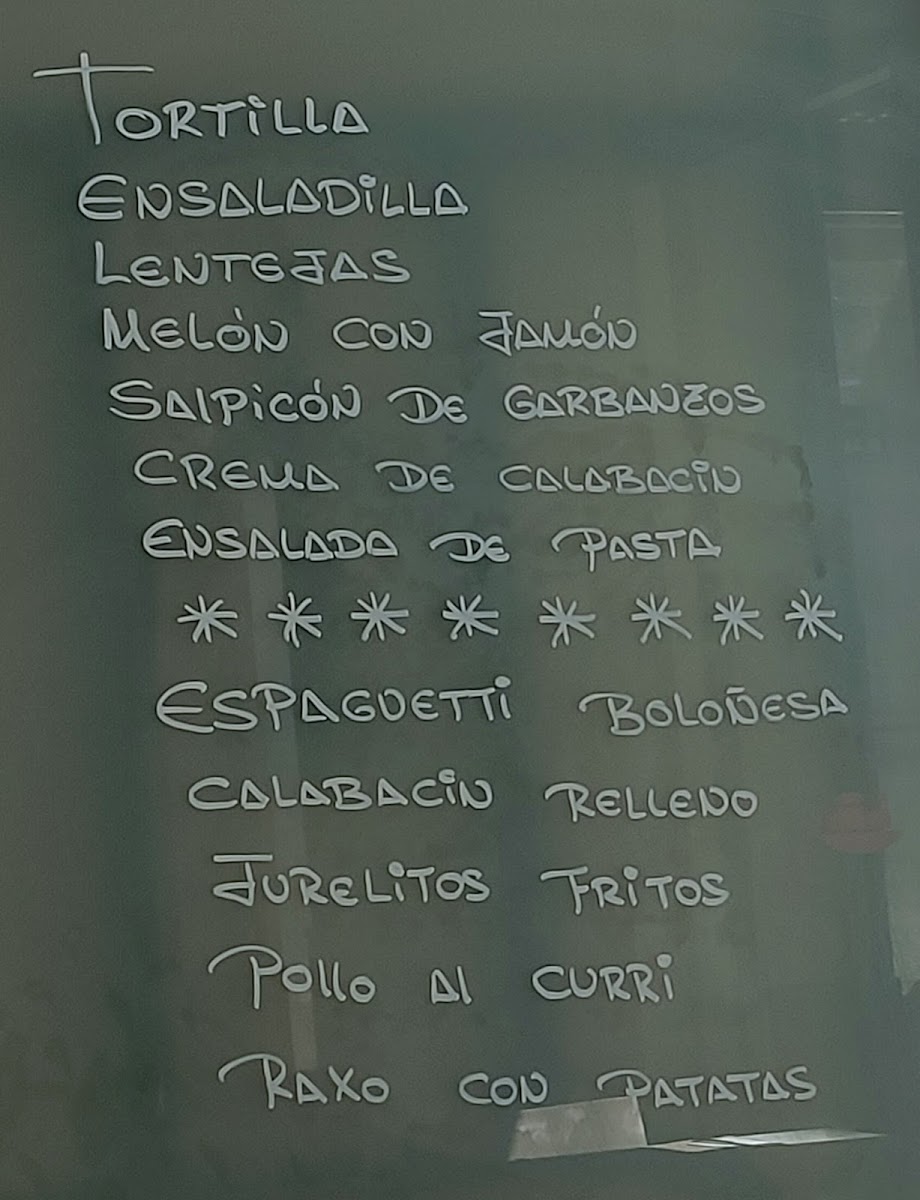 TORTiLLA
ENSALADiLLA
LENTEJAS
MELÓN CON JAMÓN
SALPiCÓN DE GARBANZOS
CREMA DE CALABACiN
ENSALADA DE PASTA
* * * * * * * *
ESPAGUETTi BOLOÑESA
CALABACiN RELLENO
JURELiTOS FRiTOS
POLLO AL CURRi
RAXO CON PATATAS